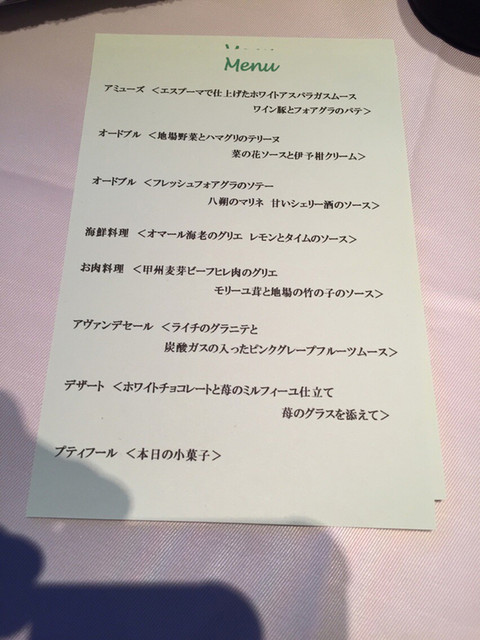 Menu
アミューズ <エスプーマで仕上げたホワイトアスパラガスムース
ワイン豚とフォアグラのパテ>
オードブル <地場野菜とハマグリのテリーヌ
菜の花ソースと伊予柑クリーム>
オードブル <フレッシュフォアグラのソテー
八朔のマリネ 甘いシェリー酒のソース>
海鮮料理 <オマール海老のグリエ レモンとタイムのソース>
お肉料理 <甲州麦芽ビーフヒレ肉のグリエ
モリーユ茸と地場の竹の子のソース>
アヴァンデセール <ライチのグラニテと
炭酸ガスの入ったピンクグレープフルーツムース>
デザート <ホワイトチョコレートと苺のミルフィーユ仕立て
苺のグラスを添えて>
プティフール <本日の小菓子>